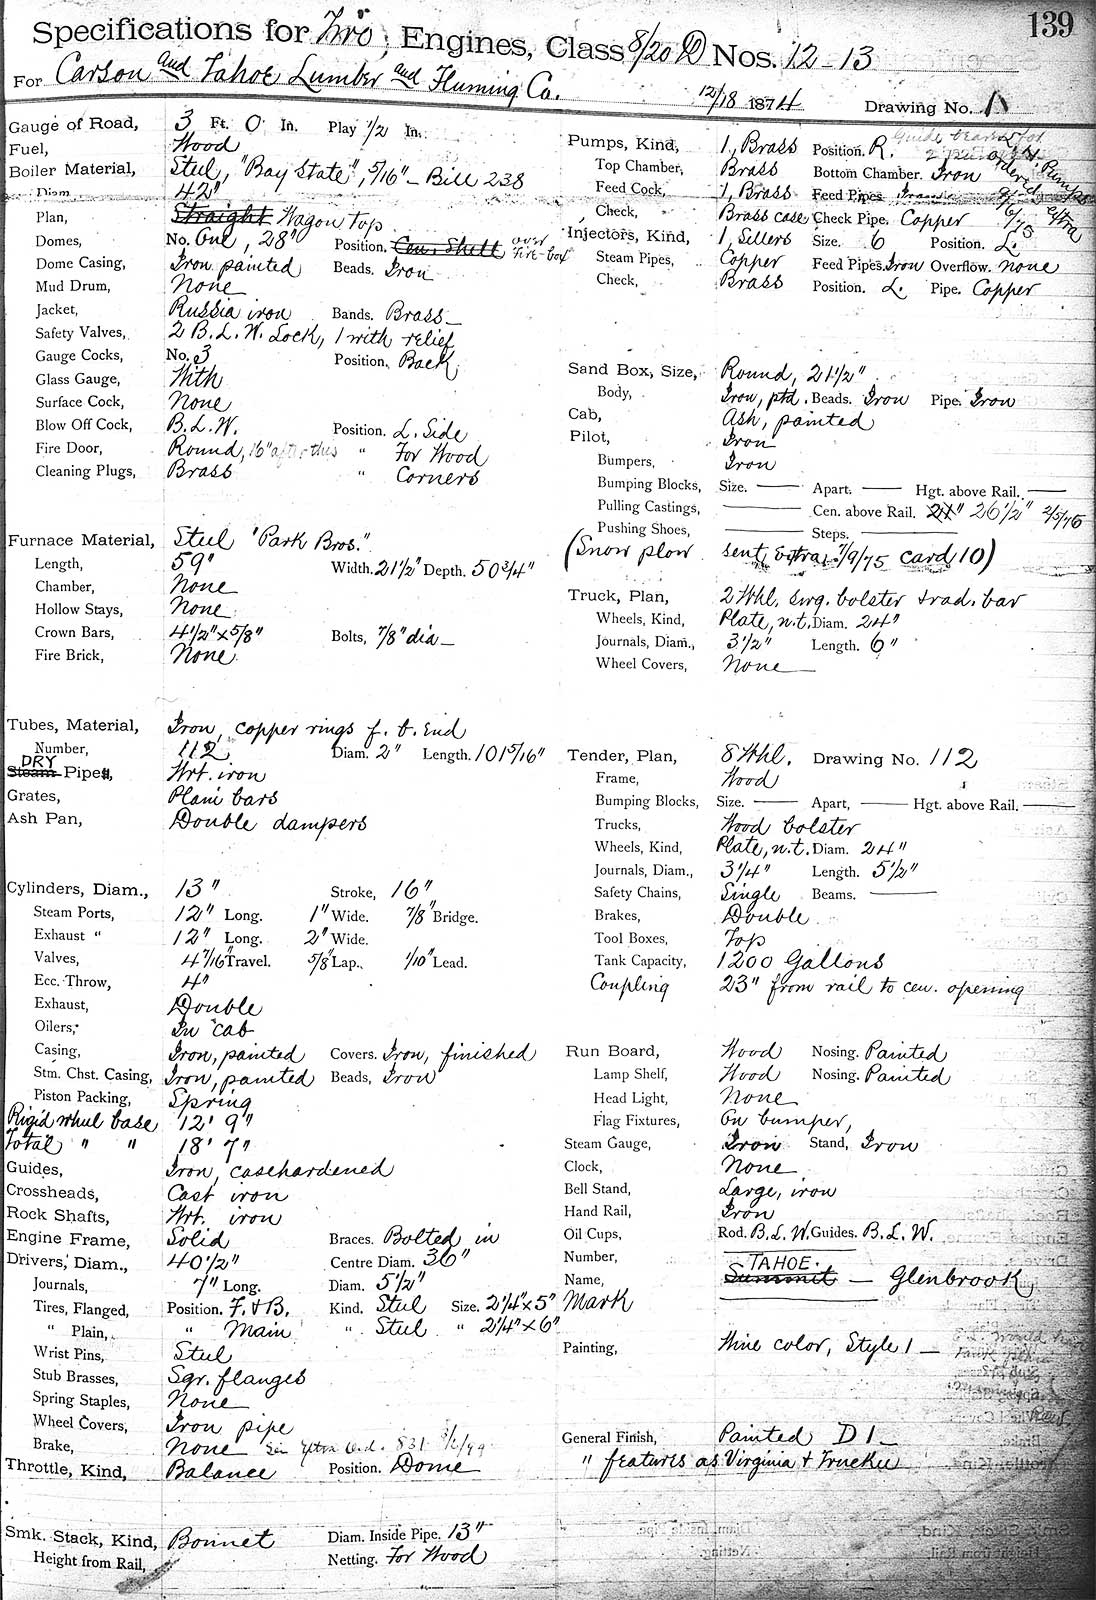 139
Specifications for Two, Engines, Class 8/20 D Nos. 12-13
For Carson and Tahoe Lumber and Fluming Co.
12/18 1874 Drawing No. 1
Gauge of Road, 3 Ft. 0 In. Play 1/2 In.
Fuel, Wood
Boiler Material, Steel, "Bay State", 5/16" - Bill 238
Diam. 42"
Plan, Straight Wagon top
Domes, No. One, 28" Position. Cen. Shell over fire-box
Dome Casing, Iron painted Beads. Iron
Mud Drum, None
Jacket, Russia iron Bands. Brass
Safety Valves, 2 B.L.W. Lock, 1 with relief
Gauge Cocks, No. 3 Position, Back
Glass Gauge, With
Surface Cock, None
Blow Off Cock, B.L.W. Position. L. Side
Fire Door, Round, 16" after this " For Wood
Cleaning Plugs, Brass " Corners
Furnace Material, Steel "Park Bros."
Length, 59" Width. 21 1/2" Depth. 50 3/4"
Chamber, None
Hollow Stays, None
Crown Bars, 4 1/2" x 5/8" Bolts, 7/8" dia
Fire Brick, None
Tubes, Material, Iron, copper rings f. b. End
Number, 112 Diam. 2" Length. 101 5/16"
DRY
Steam Pipes, Wrt. iron
Grates, Plain bars
Ash Pan, Double dampers
Cylinders, Diam., 13" Stroke, 16"
Steam Ports, 12" Long. 1" Wide. 7/8" Bridge.
Exhaust " 12" Long. 2" Wide.
Valves, 4 7/16" Travel. 5/8" Lap., 1/10" Lead.
Ecc. Throw, 4"
Exhaust, Double
Oilers, In cab
Casing, Iron, painted Covers. Iron, finished
Stm. Chst. Casing, Iron, painted Beads, Iron
Piston Packing, Spring
Rigid wheel base 12' 9"
Total " " 18' 7"
Guides, Iron, casehardened
Crossheads, Cast iron
Rock Shafts, Wrt. iron
Engine Frame, Solid Braces. Bolted in
Drivers, Diam., 40 1/2" Centre Diam. 36"
Journals, 7" Long. Diam. 5 1/2"
Tires, Flanged, Position. F. & B. Kind. Steel Size. 2 1/4" x 5"
" Plain, " Main " Steel " 2 1/4" x 6"
Wrist Pins, Steel
Stub Brasses, Sqr. flanges
Spring Staples, None
Wheel Covers, Iron pipe
Brake, None See Extra Ord. 831
Throttle, Kind, Balance Position. Dome
Smk. Stack, Kind, Bonnet Diam. Inside Pipe. 13"
Height from Rail, Netting. For Wood
Pumps, Kind, 1, Brass Position. R.
Top Chamber, Brass Bottom Chamber. Iron
Feed Cock, 1, Brass Feed Pipes
Check, Brass case, Check Pipe. Copper
Injectors, Kind, 1, Sellers Size. 6 Position. L.
Steam Pipes, Copper Feed Pipes. Iron Overflow. none
Check, Brass Position. L. Pipe. Copper
Sand Box, Size, Round, 21 1/2"
Body, Iron, ptd. Beads. Iron Pipe. Iron
Cab, Ash, painted
Pilot, Iron
Bumpers, Iron
Bumping Blocks, Size. — Apart. — Hgt. above Rail. —
Pulling Castings, — Cen. above Rail. 24" 26 1/2" 2/5/75
Pushing Shoes, — Steps. —
(Snow plow sent, Extra, 7/9/75 card 10)
Truck, Plan, 2 Whl. swg. bolster & rad. bar
Wheels, Kind, Plate, n.t. Diam. 24"
Journals, Diam., 3 1/2" Length. 6"
Wheel Covers, None
Tender, Plan, 8 Whl. Drawing No. 112
Frame, Wood
Bumping Blocks, Size. — Apart, — Hgt. above Rail. —
Trucks, Wood bolster
Wheels, Kind, Plate, n.t. Diam. 24"
Journals, Diam., 3 1/4" Length. 5 1/2"
Safety Chains, Single Beams. —
Brakes, Double
Tool Boxes, Top
Tank Capacity, 1200 Gallons
Coupling 23" from rail to cen. opening
Run Board, Wood Nosing. Painted
Lamp Shelf, Wood Nosing. Painted
Head Light, None
Flag Fixtures, On bumper,
Steam Gauge, Iron Stand, Iron
Clock, None
Bell Stand, Large, iron
Hand Rail, Iron
Oil Cups, Rod. B.L.W. Guides. B.L.W.
Number,
TAHOE.
Name, Summit — Glenbrook
Mark
Painting, Wine color, Style 1
General Finish, Painted D1
" features as Virginia & Truckee